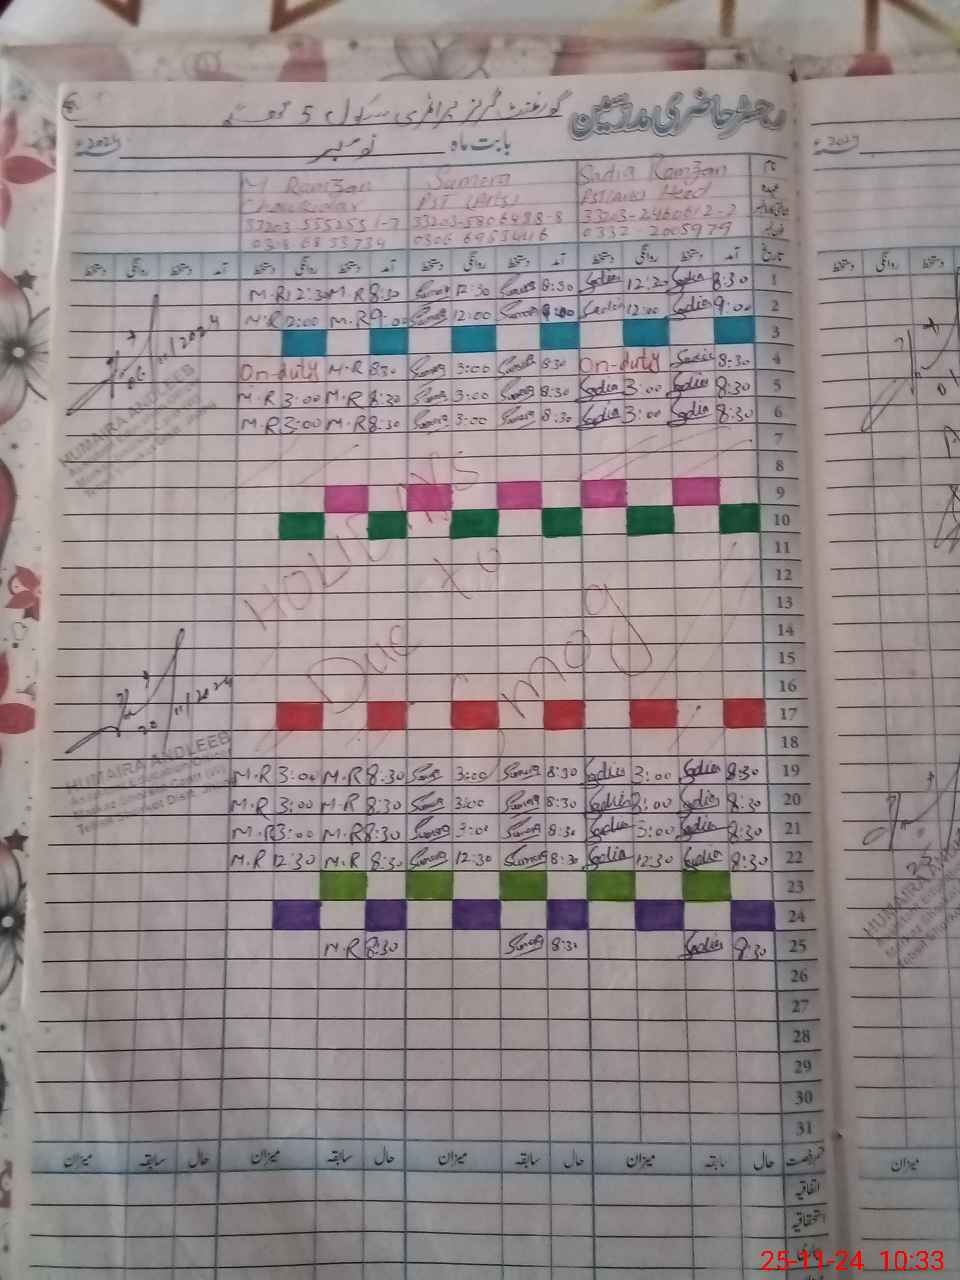 رجسٹر حاضری مدرسین گورنمنٹ گرلز پرائمری سکول
بابت ماہ نومبر 2024ء
نام Sadia Ramzan Sumera M Ramzan
عہدہ Head PST (Arts) Chowkidar
33203-2460612-2 33203-5806488-8
0332-2005979 0306 6953446 0308 6853734
تاریخ آمد دستخط روانگی دستخط آمد دستخط روانگی دستخط آمد دستخط روانگی دستخط آمد دستخط روانگی دستخط
1 8:30 Sadia 12:30 Sadia 8:30 Sumera 12:30 Sumera 8:30 M.R 12:30 M.R
2 9:00 Sadia 12:00 Sadia 9:00 Sumera 12:00 Sumera 9:00 M.R 12:00 M.R
3
4 8:30 Sadia On-duty 8:30 Sumera 3:00 Sumera 8:30 M.R On-duty
5 8:30 Sadia 3:00 Sadia 8:30 Sumera 3:00 Sumera 8:30 M.R 3:00 M.R
6 8:30 Sadia 3:00 Sadia 8:30 Sumera 3:00 Sumera 8:30 M.R 3:00 M.R
06/11/2024
HUMAIRA ANDLEEB
7
8
9
10
11
12
13
14
15
16
17
18
HOLIDAYS
Due to
Smog
19 8:30 Sadia 3:00 Sadia 8:30 Sumera 3:00 Sumera 8:30 M.R 3:00 M.R
20 8:30 Sadia 3:00 Sadia 8:30 Sumera 3:00 Sumera 8:30 M.R 3:00 M.R
21 8:30 Sadia 3:00 Sadia 8:30 Sumera 3:00 Sumera 8:30 M.R 3:00 M.R
22 8:30 Sadia 12:30 Sadia 8:30 Sumera 12:30 Sumera 8:30 M.R 12:30 M.R
20/11/2024
HUMAIRA ANDLEEB
23
24
25 8:30 Sadia 8:30 Sumera 8:30 M.R
26
27
28
29
30
31
قسم رخصت حال سابقہ میزان حال سابقہ میزان حال سابقہ میزان حال سابقہ میزان
اتفاقیہ
استحقاقیہ
2024ء
دستخط روانگی دستخط
میزان
25-11-24 10:33